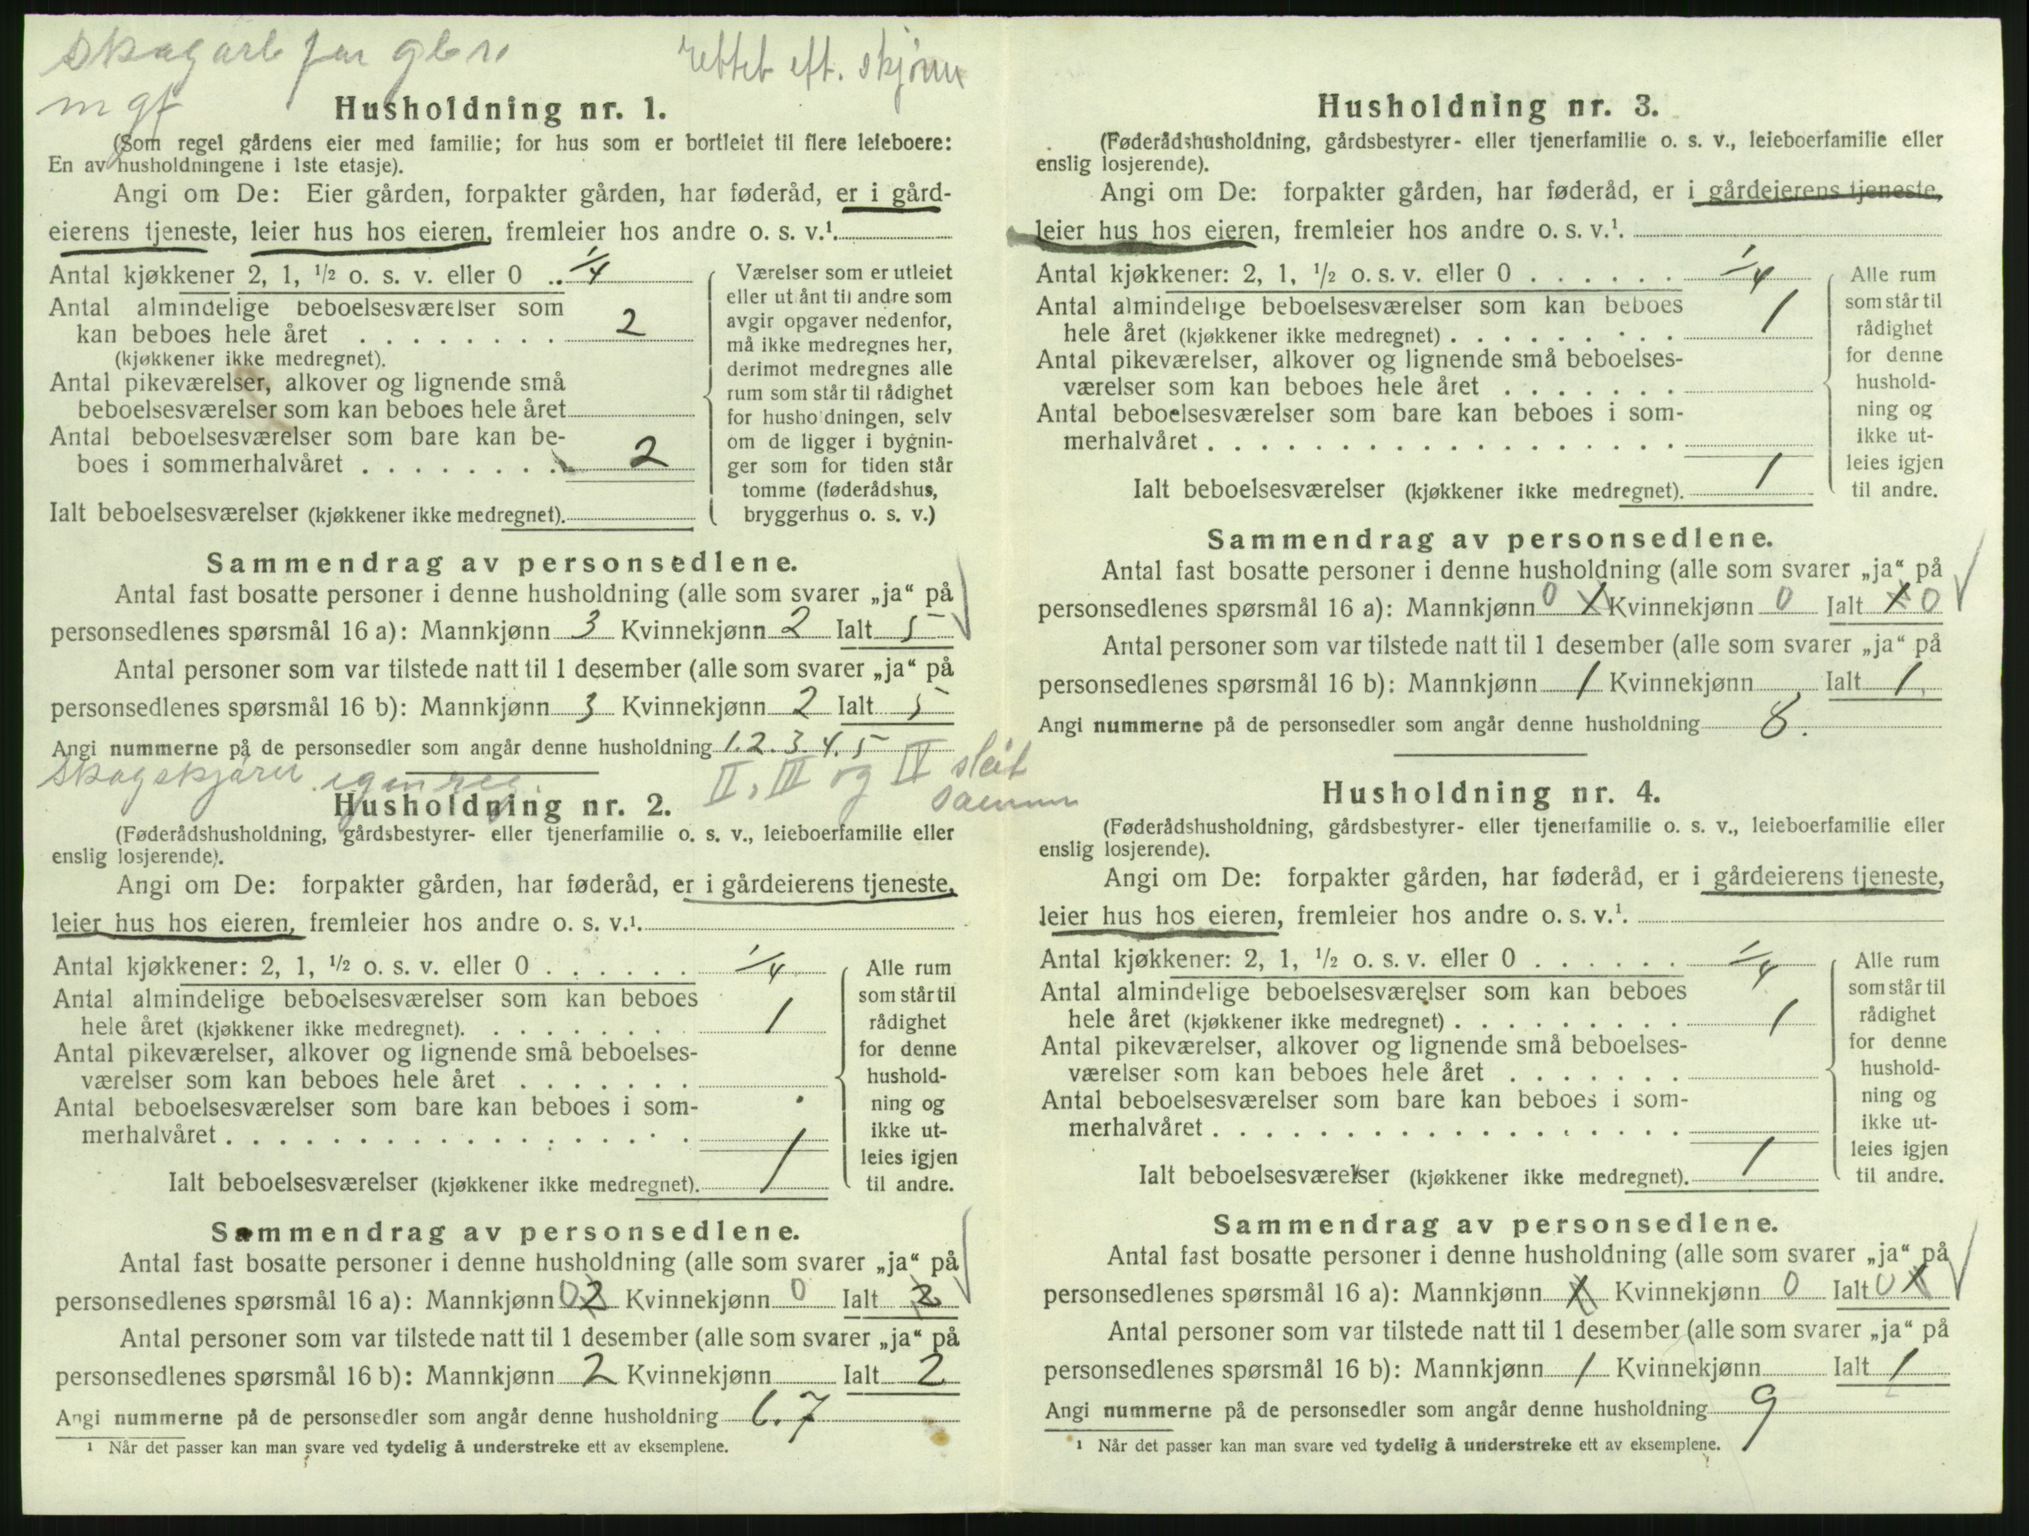 rettet eft. skjønn
Husholdning nr. 1.
(Som regel gårdens eier med familie; for hus som er bortleiet til flere leieboere:
En av husholdningene i 1ste etasje).
Angi om De: Eier gården, forpakter gården, har føderåd, er i gård-
eierens tjeneste, leier hus hos eieren, fremleier hos andre o. s. v.¹
Antal kjøkkener 2, 1, ½ o. s. v. eller 0 .. 1/4
Antal almindelige beboelsesværelser som
kan beboes hele året . . . . . . . . 2
(kjøkkener ikke medregnet).
Antal pikeværelser, alkover og lignende små
beboelsesværelser som kan beboes hele året
Antal beboelsesværelser som bare kan be-
boes i sommerhalvåret . . . . . . . . 2
Ialt beboelsesværelser (kjøkkener ikke medregnet).
Værelser som er utleiet
eller ut ånt til andre som
avgir opgaver nedenfor,
må ikke medregnes her,
derimot medregnes alle
rum som står til rådighet
for husholdningen, selv
om de ligger i bygnin-
ger som for tiden står
tomme (føderådshus,
bryggerhus o. s. v.)
Sammendrag av personsedlene.
Antal fast bosatte personer i denne husholdning (alle som svarer „ja“ på
personsedlenes spørsmål 16 a): Mannkjønn 3 Kvinnekjønn 2 Ialt 5
Antal personer som var tilstede natt til 1 desember (alle som svarer „ja“ på
personsedlenes spørsmål 16 b): Mannkjønn 3 Kvinnekjønn 2 Ialt 5
Angi nummerne på de personsedler som angår denne husholdning 1.2.3.4.5
II, III og IV slåt
sammen
Husholdning nr. 2.
(Føderådshusholdning, gårdsbestyrer- eller tjenerfamilie o. s. v., leieboerfamilie eller
enslig losjerende).
Angi om De: forpakter gården, har føderåd, er i gårdeierens tjeneste,
leier hus hos eieren, fremleier hos andre o. s. v.¹.
Antal kjøkkener: 2, 1, ½ o. s. v. eller 0 . . . . . . 1/4
Antal almindelige beboelsesværelser som kan beboes
hele året (kjøkkener ikke medregnet). . . . . . . . 1
Antal pikeværelser, alkover og lignende små beboelses-
værelser som kan beboes hele året . . . . . . .
Antal beboelsesværelser som bare kan beboes i som-
merhalvåret . . . . . . . . . . . . . . . . .
Ialt beboelsesværelser (kjøkkener ikke medregnet). 1
Alle rum
som står til
rådighet
for denne
hushold-
ning og
ikke ut-
leies igjen
til andre.
Sammendrag av personsedlene.
Antal fast bosatte personer i denne husholdning (alle som svarer „ja“ på
personsedlenes spørsmål 16 a): Mannkjønn 0 2 Kvinnekjønn 0 Ialt 2
Antal personer som var tilstede natt til 1 desember (alle som svarer „ja“ på
personsedlenes spørsmål 16 b): Mannkjønn 2 Kvinnekjønn Ialt 2
Angi nummerne på de personsedler som angår denne husholdning 6.7
¹ Når det passer kan man svare ved tydelig å understreke ett av eksemplene.
Husholdning nr. 3.
(Føderådshusholdning, gårdsbestyrer- eller tjenerfamilie o. s. v., leieboerfamilie eller
enslig losjerende).
Angi om De: forpakter gården, har føderåd, er i gårdeierens tjeneste,
leier hus hos eieren, fremleier hos andre o. s. v.¹.
Antal kjøkkener: 2, 1, ½ o. s. v. eller 0 . . . . . . 1/4
Antal almindelige beboelsesværelser som kan beboes
hele året (kjøkkener ikke medregnet) . . . . . . . . 1
Antal pikeværelser, alkover og lignende små beboelses-
værelser som kan beboes hele året . . . . . . .
Antal beboelsesværelser som bare kan beboes i som-
merhalvåret . . . . . . . . . . . . . . . . .
Ialt beboelsesværelser (kjøkkener ikke medregnet). 1
Alle rum
som står til
rådighet
for denne
hushold-
ning og
ikke ut-
leies igjen
til andre.
Sammendrag av personsedlene.
Antal fast bosatte personer i denne husholdning (alle som svarer „ja“ på
personsedlenes spørsmål 16 a): Mannkjønn 0 Kvinnekjønn 0 Ialt 0
Antal personer som var tilstede natt til 1 desember (alle som svarer „ja“ på
personsedlenes spørsmål 16 b): Mannkjønn 1 Kvinnekjønn Ialt 1
Angi nummerne på de personsedler som angår denne husholdning 8.
Husholdning nr. 4.
(Føderådshusholdning, gårdsbestyrer- eller tjenerfamilie o. s. v., leieboerfamilie eller
enslig losjerende).
Angi om De: forpakter gården, har føderåd, er i gårdeierens tjeneste,
leier hus hos eieren, fremleier hos andre o. s. v.¹.
Antal kjøkkener: 2, 1, ½ o. s. v. eller 0 . . . . . . 1/4
Antal almindelige beboelsesværelser som kan beboes
hele året (kjøkkener ikke medregnet) . . . . . . . . 1
Antal pikeværelser, alkover og lignende små beboelses-
værelser som kan beboes hele året . . . . . . .
Antal beboelsesværelser som bare kan beboes i som-
merhalvåret . . . . . . . . . . . . . . . . .
Ialt beboelsesværelser (kjøkkener ikke medregnet). 1
Alle rum
som står til
rådighet
for denne
hushold-
ning og
ikke ut-
leies igjen
til andre.
Sammendrag av personsedlene.
Antal fast bosatte personer i denne husholdning (alle som svarer „ja“ på
personsedlenes spørsmål 16 a): Mannkjønn Kvinnekjønn 0 Ialt 0
Antal personer som var tilstede natt til 1 desember (alle som svarer „ja“ på
personsedlenes spørsmål 16 b): Mannkjønn 1 Kvinnekjønn Ialt 1
Angi nummerne på de personsedler som angår denne husholdning 9
¹ Når det passer kan man svare ved tydelig å understreke ett av eksemplene.